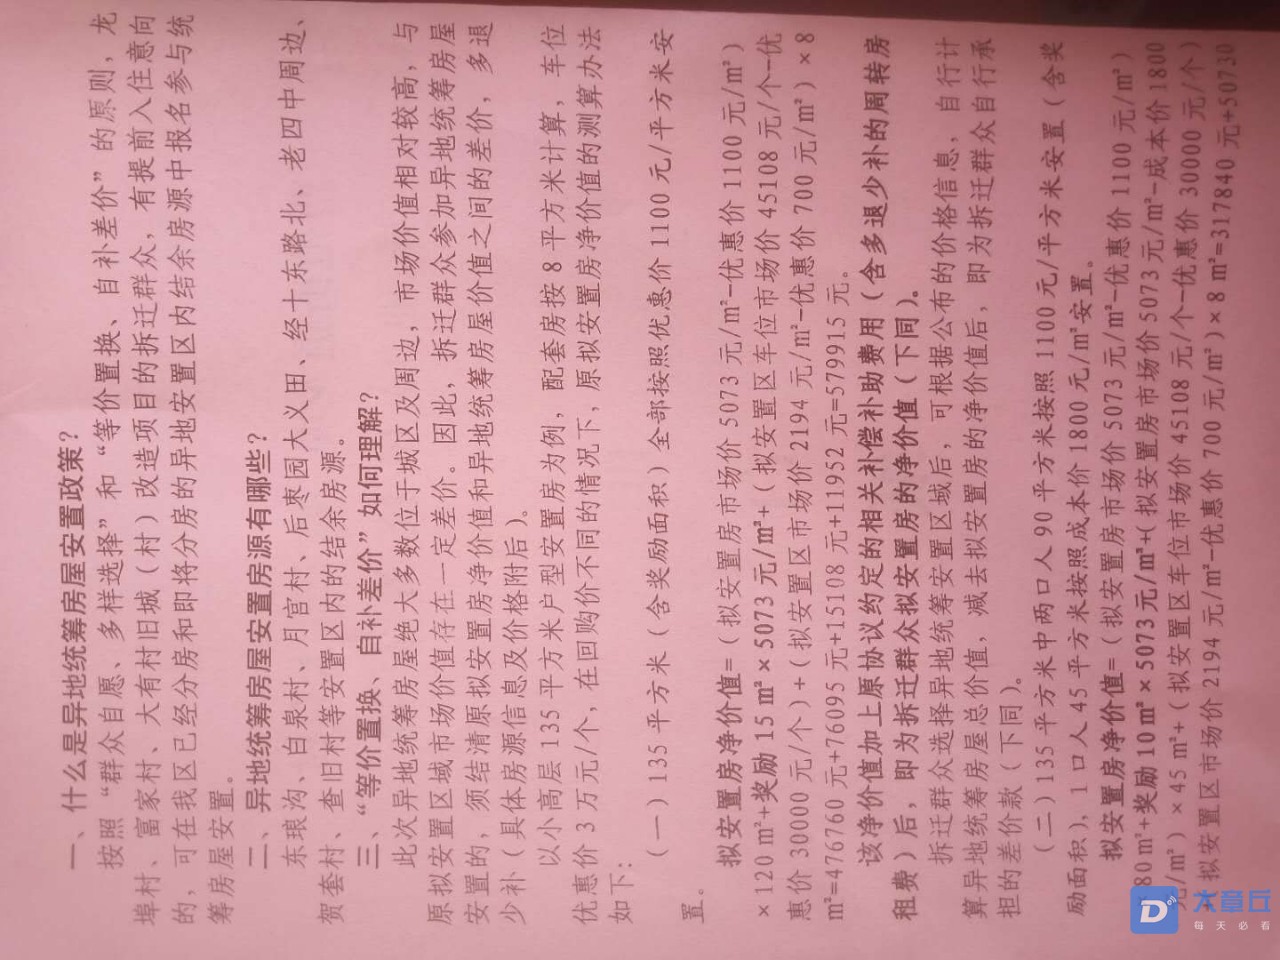 一、什么是异地统筹房屋安置政策？
按照“群众自愿、多样选择”和“等价置换、自补差价”的原则，龙
埠村、富家村、大有村旧城（村）改造项目的拆迁群众，有提前入住意向
的，可在我区已经分房和即将分房的异地安置区内结余房源中报名参与统
筹房屋安置。
二、异地统筹房屋安置房源有哪些？
东琅沟、白泉村、月宫村、后枣园大义田、经十东路北、老四中周边、
贺套村、查旧村等安置区内的结余房源。
三、“等价置换、自补差价”如何理解？
此次异地统筹房屋绝大多数位于城区及周边，市场价值相对较高，与
原拟安置区域市场价值存在一定差价。因此，拆迁群众参加异地统筹房屋
安置的，须结清原拟安置房净价值和异地统筹房屋价值之间的差价，多退
少补（具体房源信息及价格附后）。
以小高层 135 平方米户型安置房为例，配套房按 8 平方米计算，车位
优惠价 3 万元/个，在回购价不同的情况下，原拟安置房净价值的测算办法
如下：
（一）135 平方米（含奖励面积）全部按照优惠价 1100 元/平方米安
置。
拟安置房净价值=（拟安置房市场价 5073 元/㎡-优惠价 1100 元/㎡）
×120 ㎡+奖励 15 ㎡×5073 元/㎡+（拟安置区车位市场价 45108 元/个-优
惠价 30000 元/个）+（拟安置区市场价 2194 元/㎡-优惠价 700 元/㎡）×8
㎡=476760 元+76095 元+15108 元+11952 元=579915 元。
该净价值加上原协议约定的相关补偿补助费用（含多退少补的周转房
租费）后，即为拆迁群众拟安置房的净价值（下同）。
拆迁群众选择异地统筹安置区域后，可根据公布的价格信息，自行计
算异地统筹房屋总价值，减去拟安置房的净价值后，即为拆迁群众自行承
担的差价款（下同）。
（二）135 平方米中两口人 90 平方米按照 1100 元/平方米安置（含奖
励面积），1 口人 45 平方米按照成本价 1800 元/㎡安置。
拟安置房净价值=（拟安置房市场价 5073 元/㎡-优惠价 1100 元/㎡）
×80 ㎡+奖励 10 ㎡×5073 元/㎡+(拟安置房市场价 5073 元/㎡-成本价 1800
元/㎡）×45 ㎡+（拟安置区车位市场价 45108 元/个-优惠价 30000 元/个）
+拟安置区市场价 2194 元/㎡-优惠价 700 元/㎡）×8 ㎡=317840 元+50730
大章丘
每天必看